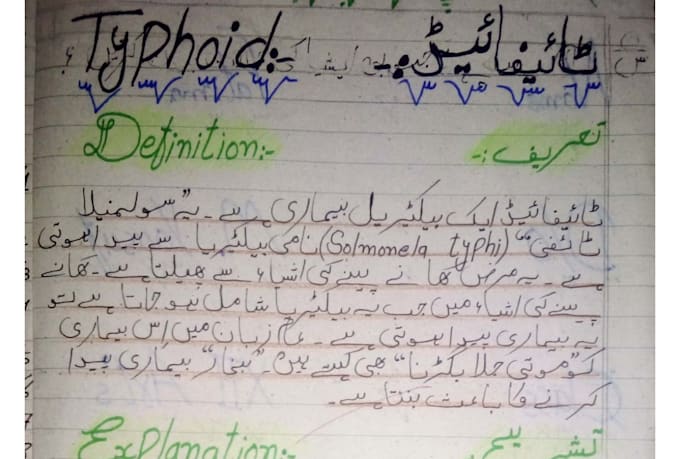 Typhoid:- ٹائیفائیڈ:-
Definition:- تعریف:-
ٹائیفائیڈ ایک بیکٹیریل بیماری ہے۔ یہ "سولمنیلا
ٹائفی" (Solmonela typhi) نامی بیکٹیریا سے پیدا ہوتی
ہے۔ یہ مرض کھانے پینے کی اشیاء سے پھیلتا ہے۔ کھانے
پینے کی اشیاء میں جب یہ بیکٹیریا شامل ہو جاتا ہے تو
یہ بیماری پیدا ہوتی ہے۔ عام زبان میں اس بیماری
کو "موتی جلا بگڑنا" بھی کہتے ہیں۔ "بخار" بیماری پیدا
کرنے کا باعث بنتا ہے۔
Explanation:- تشریح